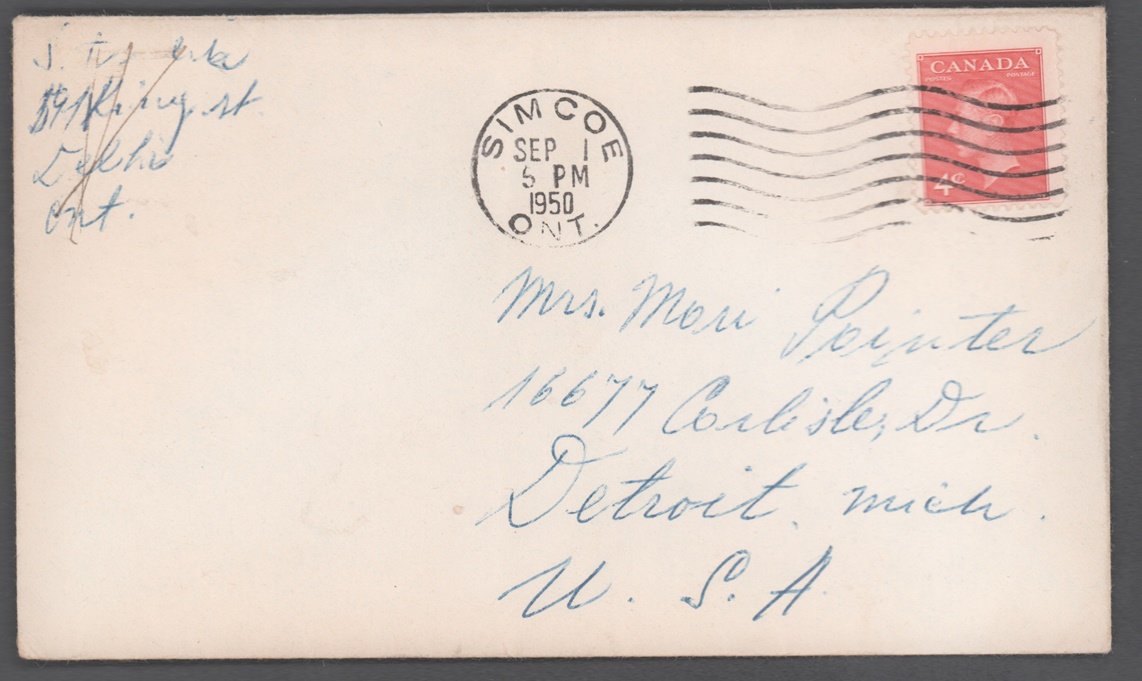 King st.
Delhi
Ont.
SIMCOE
SEP 1
5 PM
1950
ONT.
CANADA
POSTES POSTAGE
4¢
Mrs. Mori Pointer
16677 Carlisle, Dr.
Detroit, Mich.
U. S. A